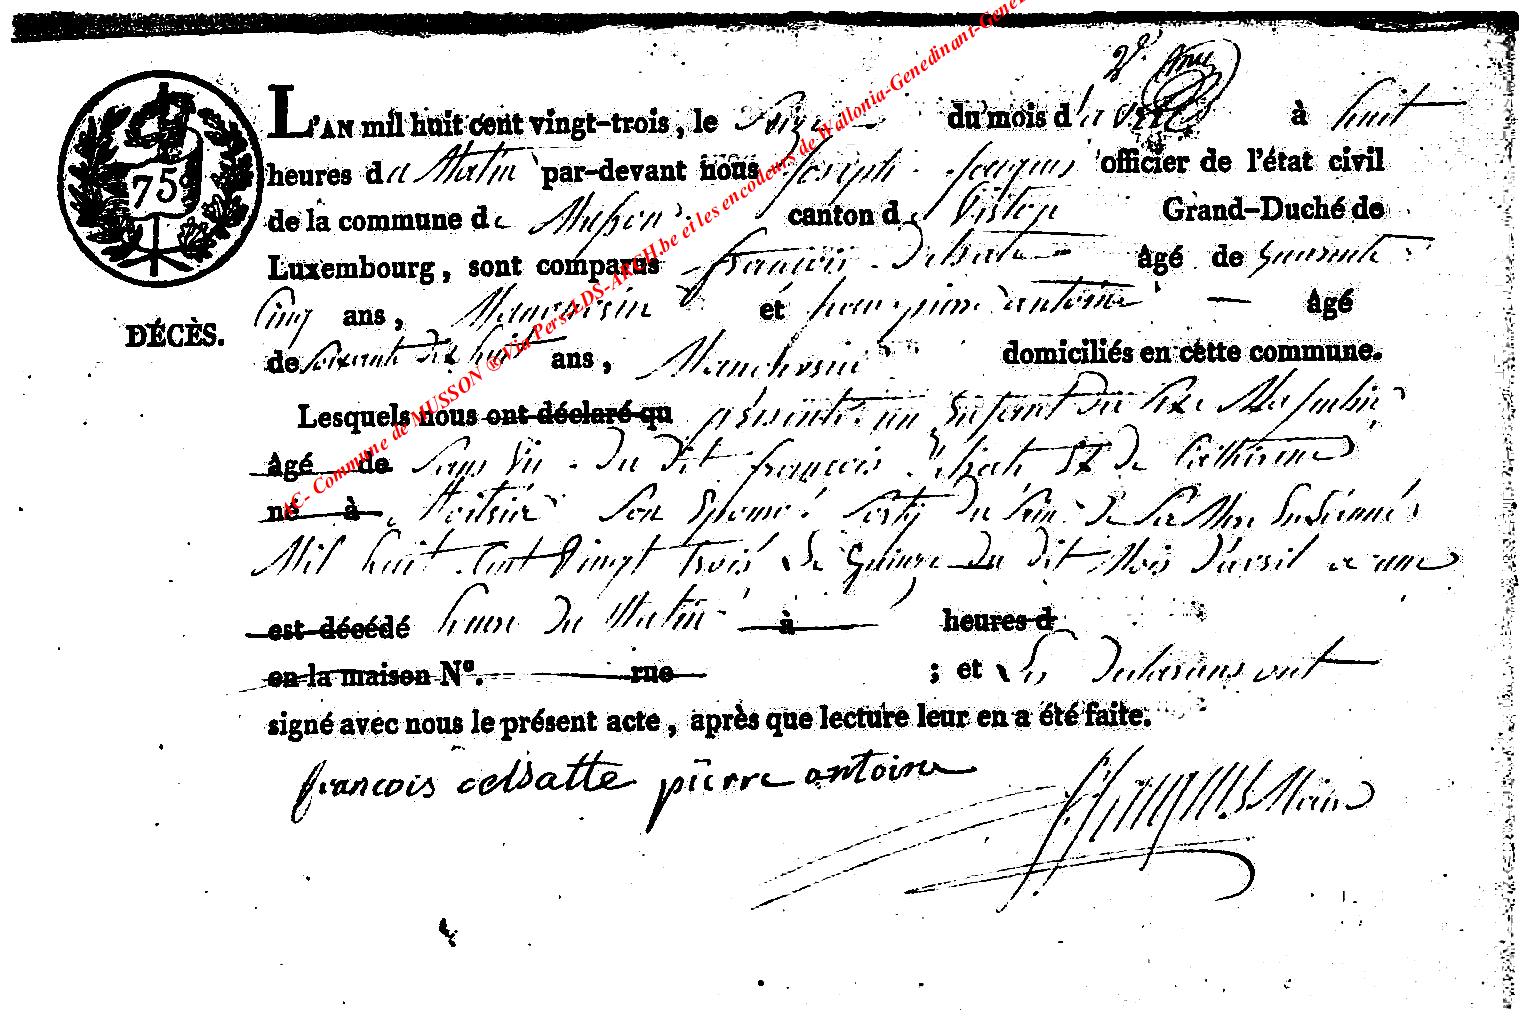 75
L'AN mil huit cent vingt-trois, le Seize du mois d'avril à huit
heures du Matin par-devant nous Joseph Jacques officier de l'état civil
de la commune de Musson canton de Virton Grand-Duché de
Luxembourg, sont comparus françois Delsate âgé de quarante
Cinq ans, Manouvrier et pierre antoine âgé
DÉCÈS.
de Soixante dix huit ans, Manouvrier domiciliés en cette commune.
Lesquels nous ont déclaré qu présenté un Enfant du Sexe Masculin
âgé de Sans Vie du dit françois Delsate Et de Catherine
né à Son Epouse Sorty du Sein de Sa Mere
Mil huit Cent Vingt trois Le Quinze du dit Mois d'avril a une
est décédé heure du Matin à heures d
en la maison N°. rue ; et Les Declarans ont
signé avec nous le présent acte, après que lecture leur en a été faite.
françois delsatte pierre antoine Maire
AC- Commune de MUSSON ®Via Pers-LDS-ARCH.be et les encodeurs de Wallonia-Genedinant-Gene